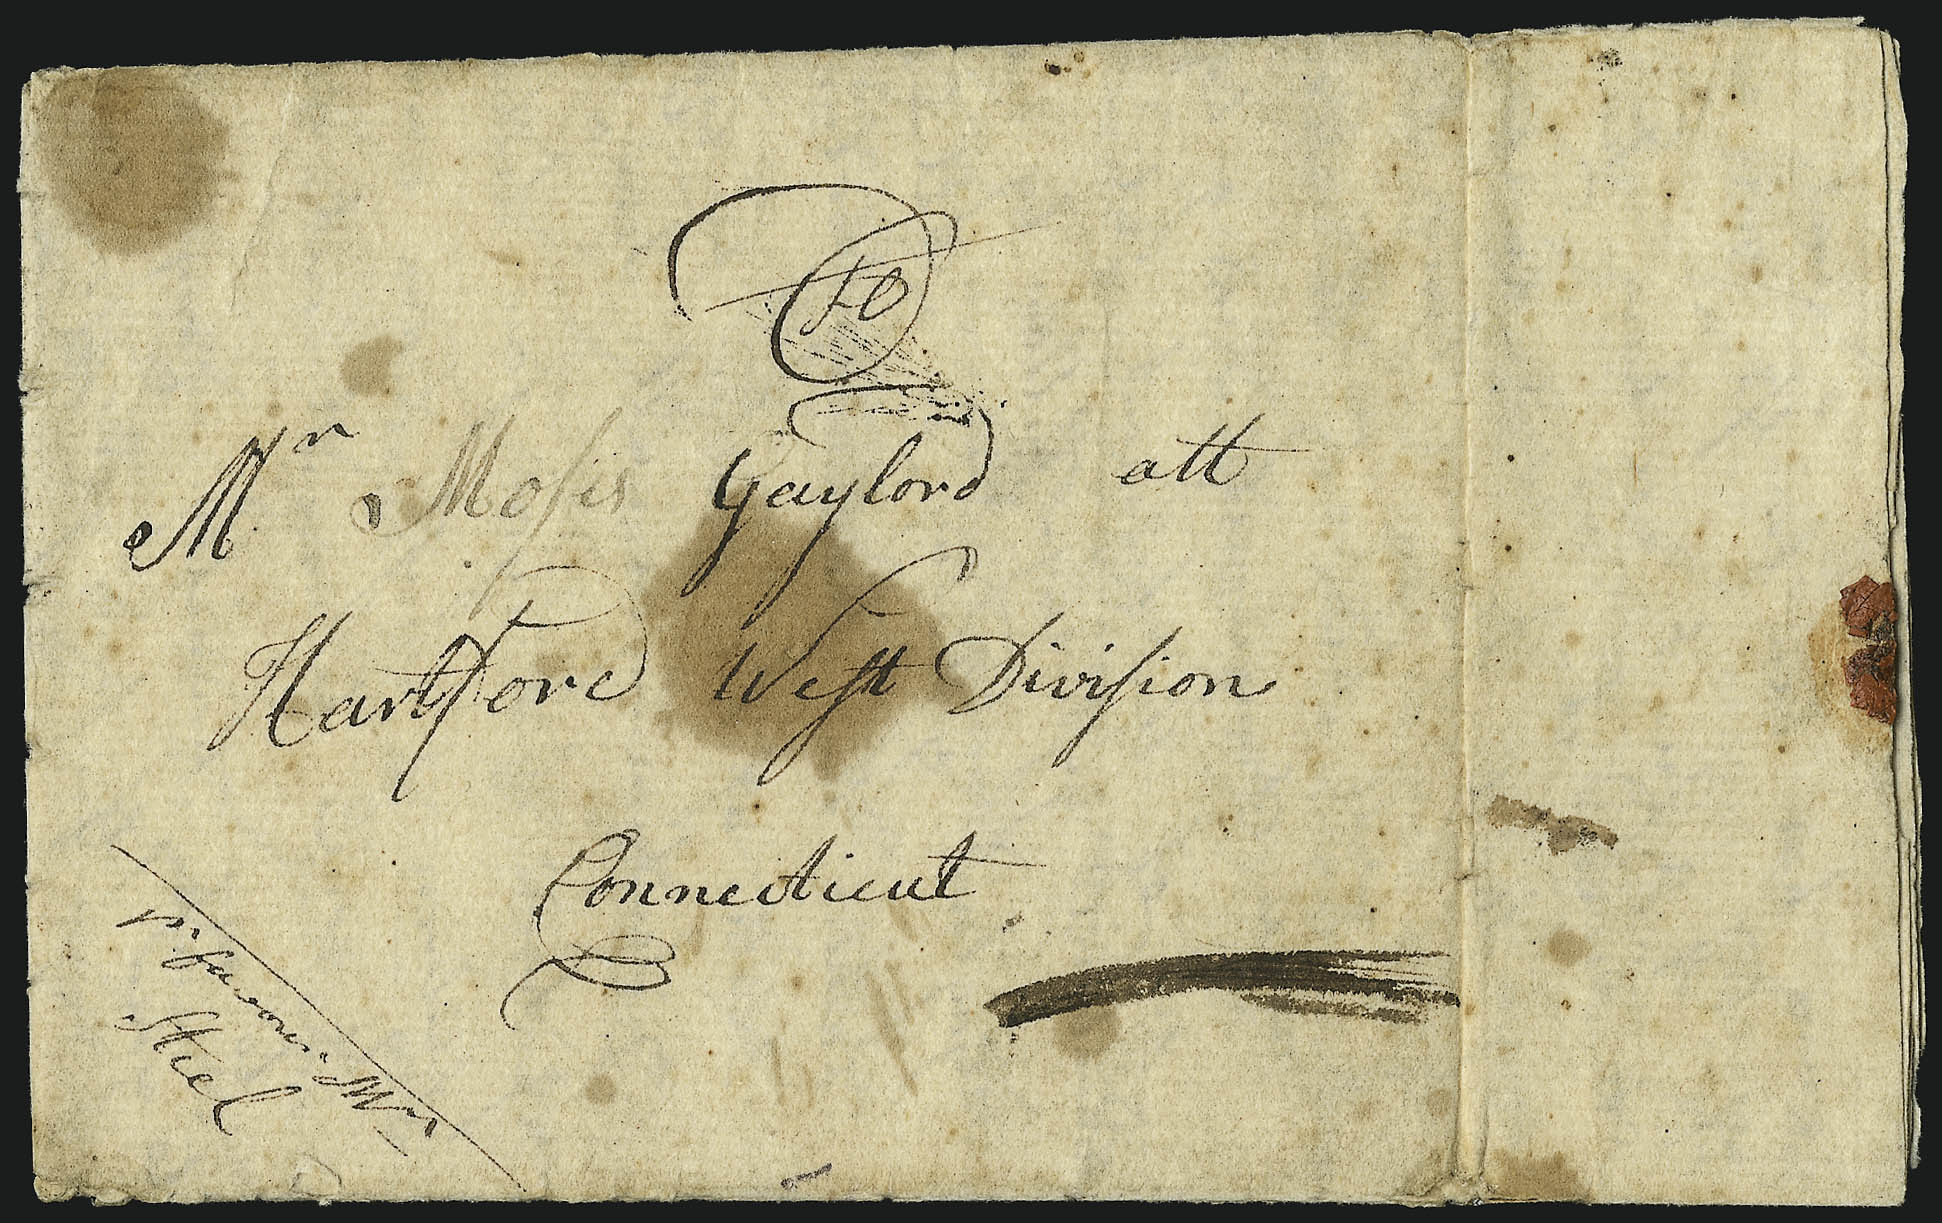 To
Mr Moses Gaylord att
Hartford West Division
Connecticut
pr. favour. Mr
Steel